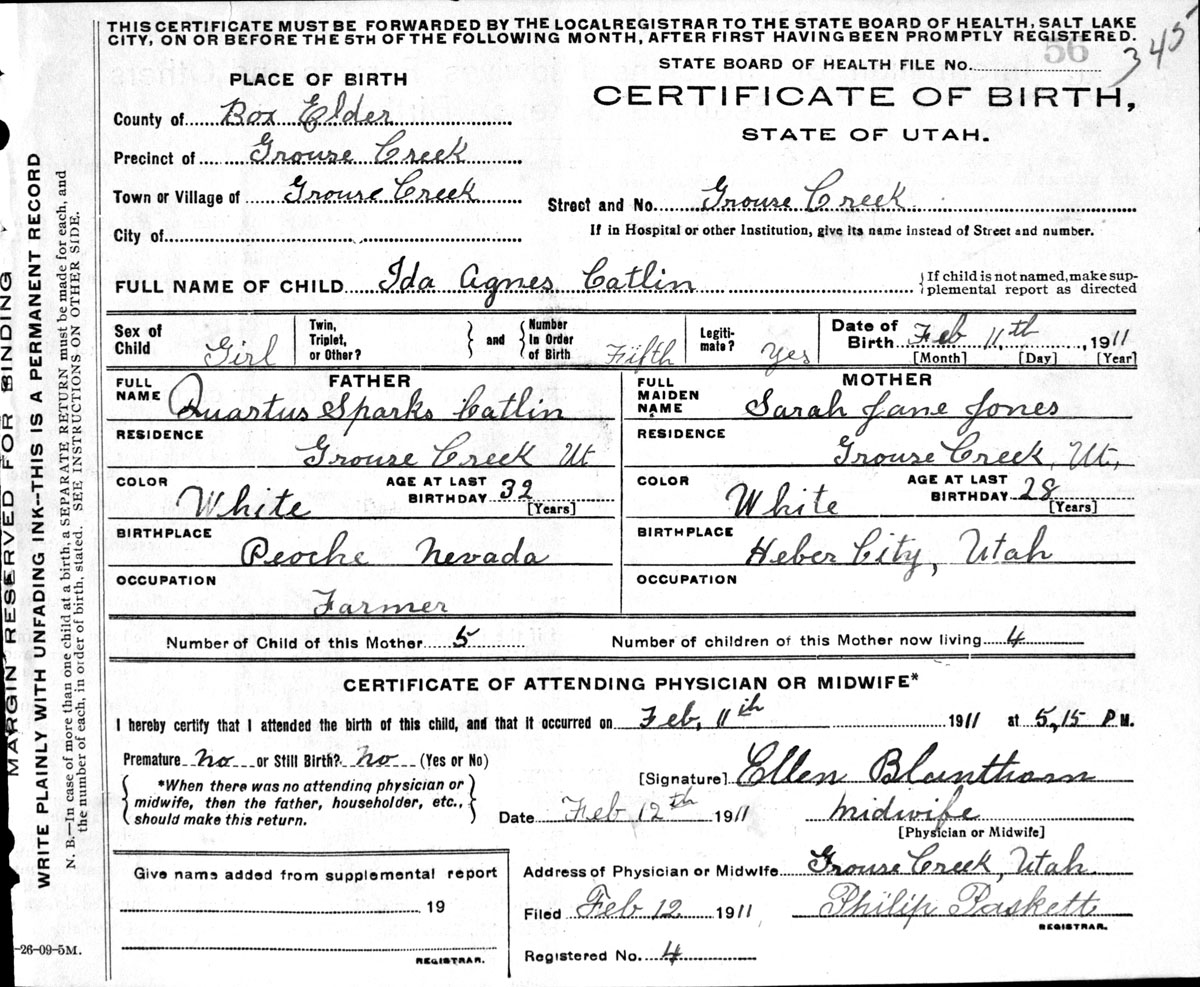 THIS CERTIFICATE MUST BE FORWARDED BY THE LOCAL REGISTRAR TO THE STATE BOARD OF HEALTH, SALT LAKE
CITY, ON OR BEFORE THE 5TH OF THE FOLLOWING MONTH, AFTER FIRST HAVING BEEN PROMPTLY REGISTERED.
56
345
STATE BOARD OF HEALTH FILE No.
CERTIFICATE OF BIRTH,
STATE OF UTAH.
PLACE OF BIRTH
County of Box Elder
Precinct of Grouse Creek
Town or Village of Grouse Creek
Street and No. Grouse Creek
City of
If in Hospital or other Institution, give its name instead of Street and number.
FULL NAME OF CHILD Ida Agnes Catlin
If child is not named, make sup-
plemental report as directed
Sex of Child Girl
Twin, Triplet, or Other?
and
Number In Order of Birth Fifth
Legiti-mate? Yes
Date of Birth Feb 11th, 1911
[Month] [Day] [Year]
FATHER
FULL NAME Quartus Sparks Catlin
RESIDENCE Grouse Creek Ut
COLOR White
AGE AT LAST BIRTHDAY 32
[Years]
BIRTHPLACE Peoche Nevada
OCCUPATION Farmer
MOTHER
FULL MAIDEN NAME Sarah Jane Jones
RESIDENCE Grouse Creek, Ut,
COLOR White
AGE AT LAST BIRTHDAY 28
[Years]
BIRTHPLACE Heber City, Utah
OCCUPATION
Number of Child of this Mother 5
Number of children of this Mother now living 4
CERTIFICATE OF ATTENDING PHYSICIAN OR MIDWIFE*
I hereby certify that I attended the birth of this child, and that it occurred on Feb, 11th 1911 at 5,15 P M.
Premature No or Still Birth? No (Yes or No)
*When there was no attending physician or
midwife, then the father, householder, etc.,
should make this return.
[Signature] Ellen Blanthorn
Date Feb 12th 1911
midwife
[Physician or Midwife]
Give name added from supplemental report
19
REGISTRAR.
Address of Physician or Midwife Grouse Creek, Utah
Filed Feb 12 1911 Philip Paskett
REGISTRAR.
Registered No. 4
-26-09-5M.
MARGIN RESERVED FOR BINDING
WRITE PLAINLY WITH UNFADING INK--THIS IS A PERMANENT RECORD
N. B.—In case of more than one child at a birth, a SEPARATE RETURN must be made for each, and
the number of each, in order of birth, stated. SEE INSTRUCTIONS ON OTHER SIDE.